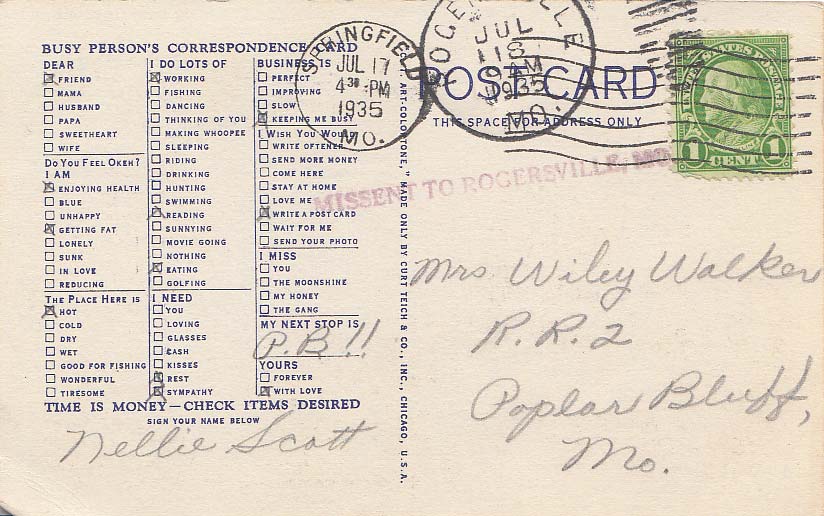 BUSY PERSON'S CORRESPONDENCE CARD
DEAR
FRIEND
MAMA
HUSBAND
PAPA
SWEETHEART
WIFE
DO YOU FEEL OKEH?
I AM
ENJOYING HEALTH
BLUE
UNHAPPY
GETTING FAT
LONELY
SUNK
IN LOVE
REDUCING
THE PLACE HERE IS
HOT
COLD
DRY
WET
GOOD FOR FISHING
WONDERFUL
TIRESOME
I DO LOTS OF
WORKING
FISHING
DANCING
THINKING OF YOU
MAKING WHOOPEE
SLEEPING
RIDING
DRINKING
HUNTING
SWIMMING
READING
SUNNYING
MOVIE GOING
NOTHING
EATING
GOLFING
I NEED
YOU
LOVING
GLASSES
CASH
KISSES
REST
SYMPATHY
BUSINESS IS
PERFECT
IMPROVING
SLOW
KEEPING ME BUSY
I WISH YOU WOULD
WRITE OFTENER
SEND MORE MONEY
COME HERE
STAY AT HOME
LOVE ME
WRITE A POST CARD
WAIT FOR ME
SEND YOUR PHOTO
I MISS
YOU
THE MOONSHINE
MY HONEY
THE GANG
MY NEXT STOP IS
P.B!!
YOURS
FOREVER
WITH LOVE
TIME IS MONEY—CHECK ITEMS DESIRED
SIGN YOUR NAME BELOW
Nellie Scott
ART-COLORTONE," MADE ONLY BY CURT TEICH & CO., INC., CHICAGO, U.S.A.
SPRINGFIELD
JUL 17
4 30 PM
1935
MO.
JUL
18
9 AM
1935
MO.
POST CARD
THIS SPACE FOR ADDRESS ONLY
MISSENT TO ROGERSVILLE, MO.
1 CENT 1
Mrs Wiley Walker
R.R.2
Poplar Bluff,
Mo.